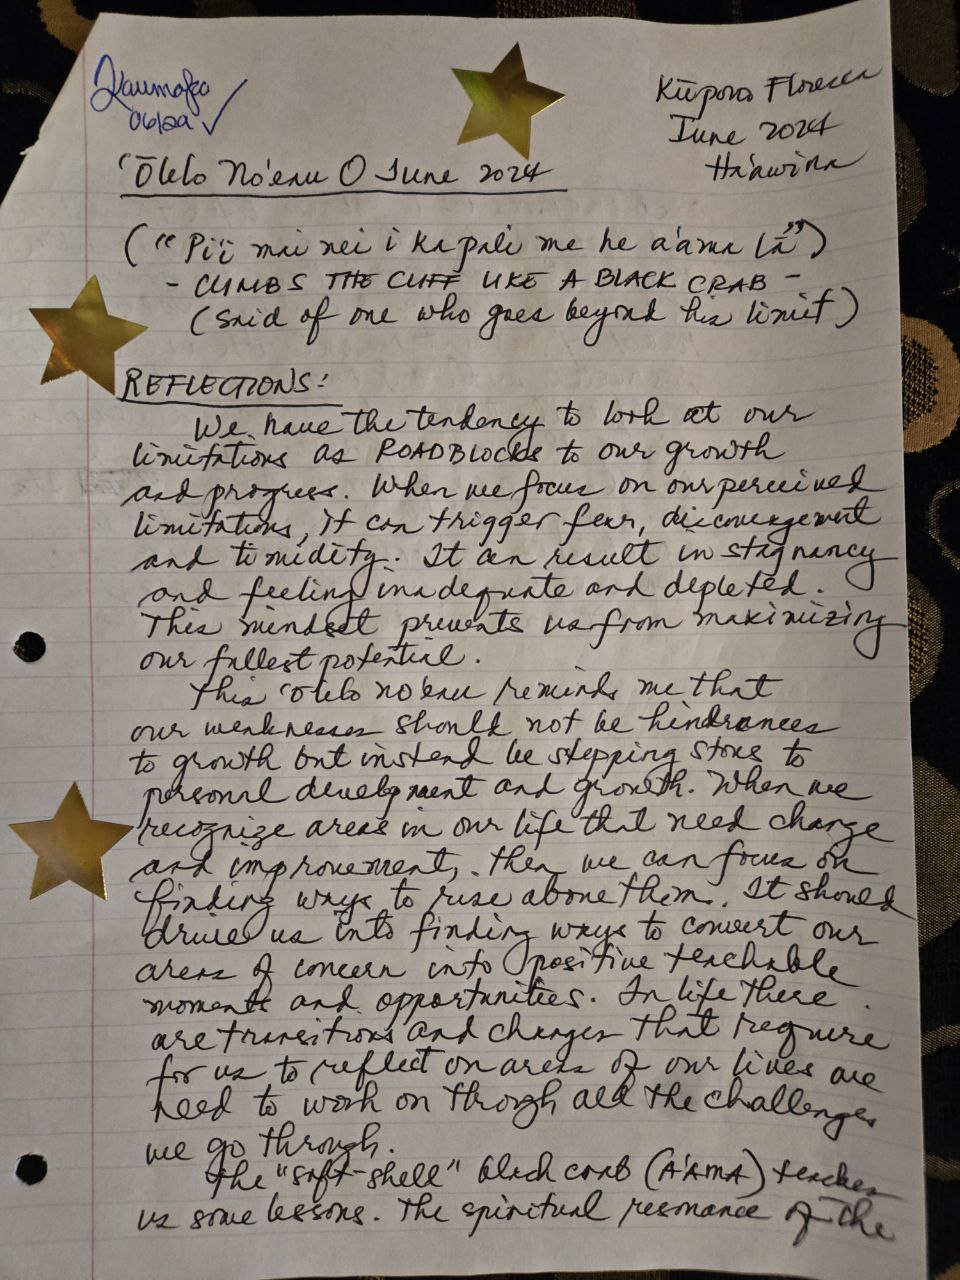 Kaumaka
06/29 ✓
Kūpono Floresca
June 2024
Ha'awina
'Ōlelo No'eau O June 2024
("Pi'i mai nei i ka pali me he a'ama lā")
- CLIMBS THE CLIFF LIKE A BLACK CRAB -
(Said of one who goes beyond his limit)
REFLECTIONS:
We have the tendency to look at our
limitations as ROADBLOCKS to our growth
and progress. When we focus on our perceived
limitations, it can trigger fear, discouragement
and timidity. It can result in stagnancy
and feeling inadequate and depleted.
This mindset prevents us from maximizing
our fullest potential.
This 'ōlelo no'eau reminds me that
our weaknesses should not be hindrances
to growth but instead be stepping stones to
personal development and growth. When we
recognize areas in our life that need change
and improvement, then we can focus on
finding ways to rise above them. It should
drive us into finding ways to convert our
areas of concern into positive teachable
moments and opportunities. In life there
are transitions and changes that require
for us to reflect on areas of our lives we
need to work on through all the challenges
we go through.
The "soft-shell" black crab (A'AMA) teaches
us some lessons. The spiritual resonance of the